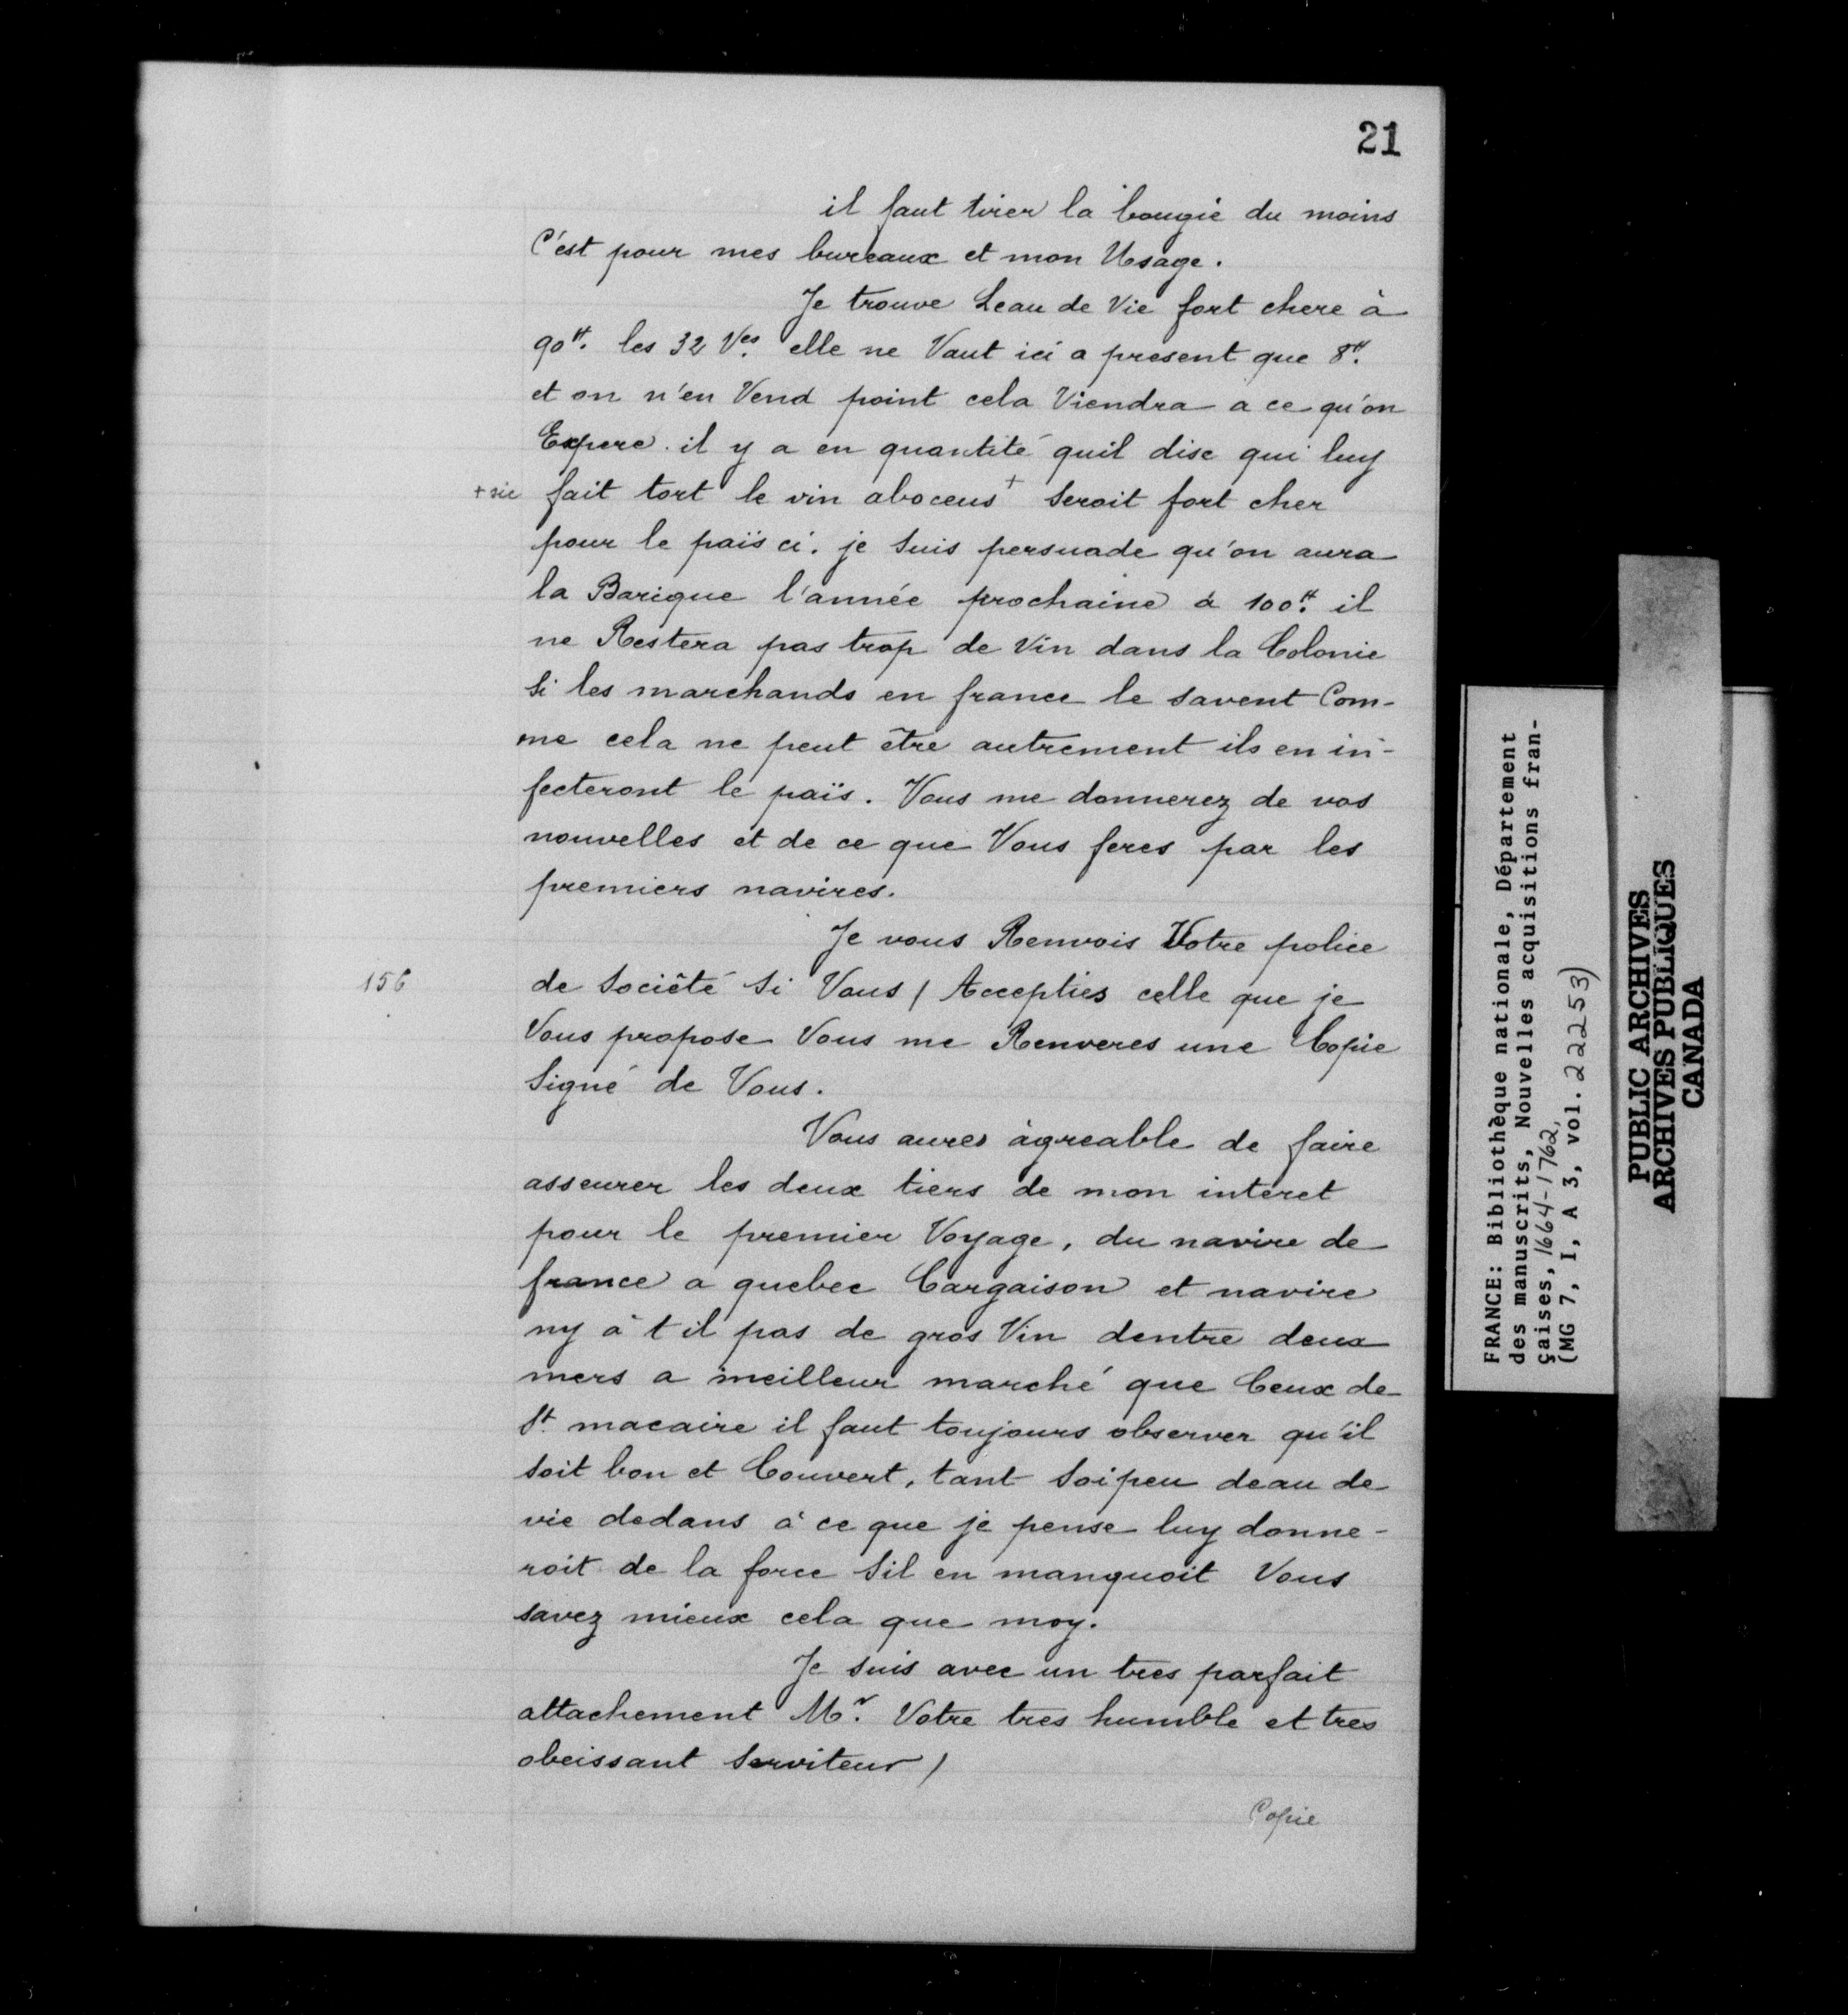 21
il faut tirer la bougie du moins
C'est pour mes bureaux et mon Usage.
Je trouve Leau de Vie fort chere à
90#. les 32 Ves. elle ne Vaut ici a present que 8#.
et on n'en Vend point cela Viendra a ce qu'on
Expere. il y a en quantité quil dise qui luy
+ sic fait tort le vin aboceus+ seroit fort cher
pour le païs ci. je suis persuade qu'on aura
la Barique l'année prochaine à 100#. il
ne Restera pas trop de Vin dans la Colonie
Si les marchands en france le savent Com-
me cela ne peut être autrement ils en in-
fecteront le païs. Vous me donnerez de vos
nouvelles et de ce que Vous feres par les
premiers navires.
Je vous Renvois Votre police
156 de Societé Si Vous / Accepties celle que je
Vous propose Vous me Renveres une Copie
Signé de Vous.
Vous aures àgreable de faire
asseurer les deux tiers de mon interet
pour le premier Voyage, du navire de
france a quebec Cargaison et navire
ny à t il pas de gros Vin dentre deux
mers a meilleur marché que Ceux de
St. macaire il faut toujours observer qu'il
soit bon et Couvert, tant soi peu deau de
vie dedans à ce que je pense luy donne-
roit de la force Sil en manquoit Vous
savez mieux cela que moy.
Je suis avec un tres parfait
attachement Mr. Votre tres humble et tres
obeissant Serviteur /
Copie
FRANCE: Bibliothèque nationale, Département
des manuscrits, Nouvelles acquisitions fran-
çaises, 1664-1762,
(MG 7, I, A 3, vol. 22253)
PUBLIC ARCHIVES
ARCHIVES PUBLIQUES
CANADA